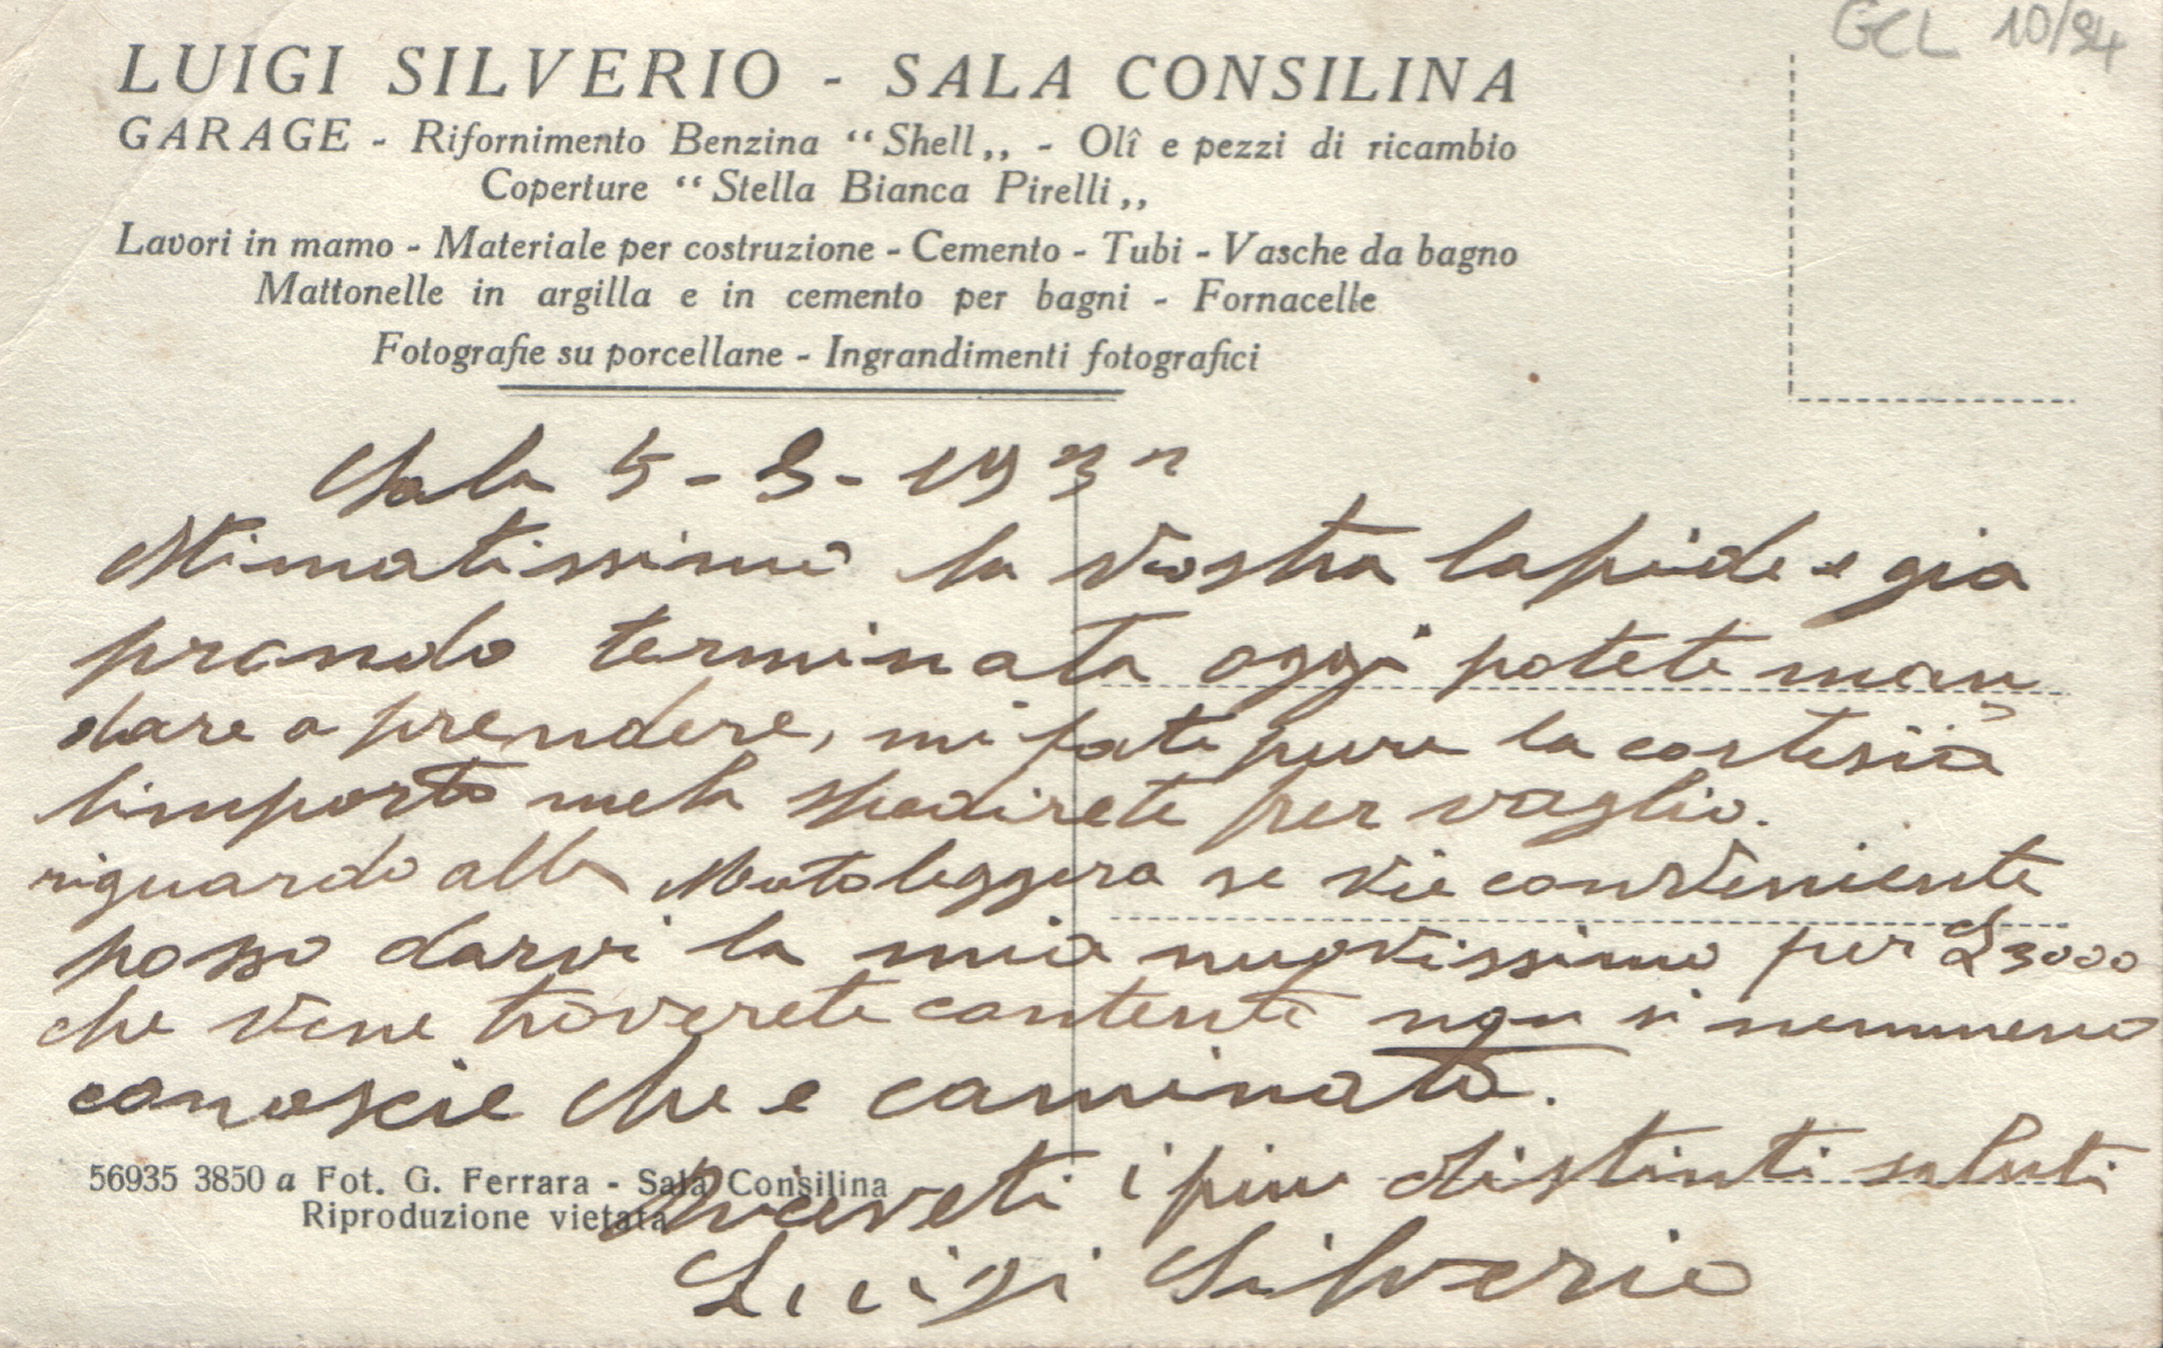 GCL 10/94
LUIGI SILVERIO - SALA CONSILINA
GARAGE - Rifornimento Benzina “Shell„ - Olî e pezzi di ricambio
Coperture “Stella Bianca Pirelli„
Lavori in mamo - Materiale per costruzione - Cemento - Tubi - Vasche da bagno
Mattonelle in argilla e in cemento per bagni - Fornacelle
Fotografie su porcellane - Ingrandimenti fotografici
Sala 5-9-193
Stimatissimo la Vostra lapide e gia
terminata oggi potete man
dare a prendere, mi fate pure la cortesia
limporto mela spedirete per vaglia.
riguardo alla Motoleggera se vi è conveniente
posso darvi la mia nuovissimo per £ 3000
che vene troverete contenti non si nemmeno
conoscie che e caminata.
Riceveti i piu distinti saluti
Luigi Silverio
56935 3850 a Fot. G. Ferrara - Sala Consilina
Riproduzione vietata